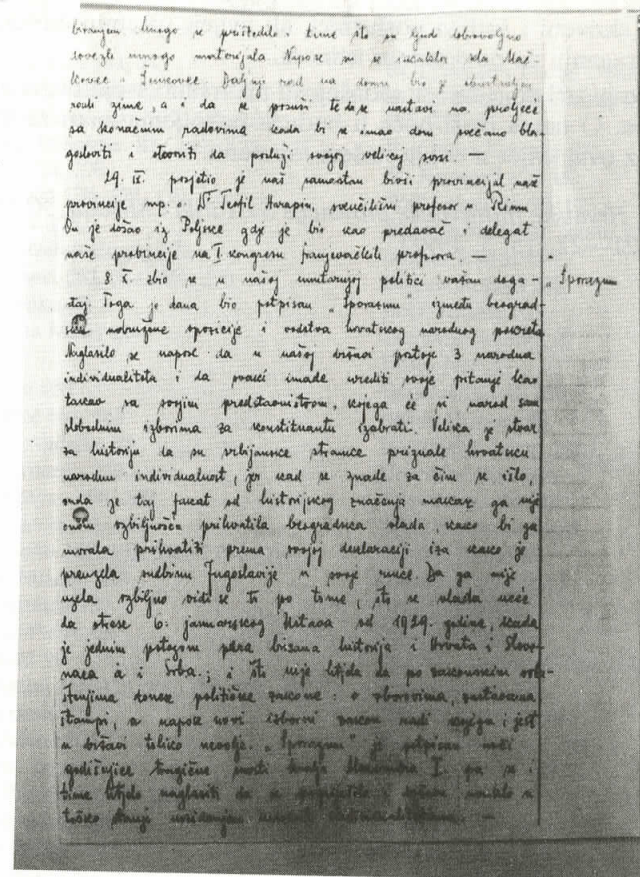 Mnogo se prištedilo i time što su ljudi dobrovoljno
dovezli mnogo materijala Napose su se iskazala sela Mač-
kovec i Daljnji rad na domu bio je obustavljen
radi zime, a i da se posuši te da se nastavi na proljeće
sa konačnim radovima kada bi se imao dom svečano bla-
gosloviti i otvoriti da posluži svojoj velikoj svrsi. —
29. IX. posjetio je naš samostan bivši provincijal naše
provincije mp. o. Dr Teofil Harapin, sveučilišni profesor u Rimu
On je došao iz Poljske gdje je bio kao predavač i delegat
naše provincije na I kongresu franjevačkih profesora. —
8. X. zbio se u našoj unutarnjoj politici važan doga-
đaj. Toga je dana bio potpisan „Sporazum" između beograd-
ske udružene opozicije i vodstva hrvatskog narodnog pokreta
„Sporazum
Naglasilo se napose da u našoj državi postoje 3 narodna
individualiteta i da svaki imade urediti svoje pitanje kao
takao sa svojim predstavništvom, kojega će si narod sam
slobodnim izborima za konstituantu izabrati. Velika je stvar
za historiju da su srbijanske stranke priznale hrvatsku
narodnu individualnost, jer kad se znade za čim se išlo,
onda je taj fakat od historijskog značenja makar ga nije
onom ozbiljnošću prihvatila beogradska vlada, kako bi ga
morala prihvatiti prema svojoj deklaraciji iza kako je
preuzela sudbinu Jugoslavije u svoje ruke. Da ga nije
uzela ozbiljno vidi se to po tome, što se vlada neće
da strese 6. januarskog Ustava od 1929. godine, kada
je jednim potezom pera brisana historija i Hrvata i Slove-
naca a i Srba; i što nije htjela da po zakonskim ovla-
štenjima donese političke zakone: o zborovima, sastancima
štampi, a napose novi izborni zakon radi kojega i jest
u državi toliko nevolje. „Sporazum" je potpisan uoči
godišnjice tragične smrti kralja Aleksandra I. pa se i
time htjelo naglasiti da se
teško stanje